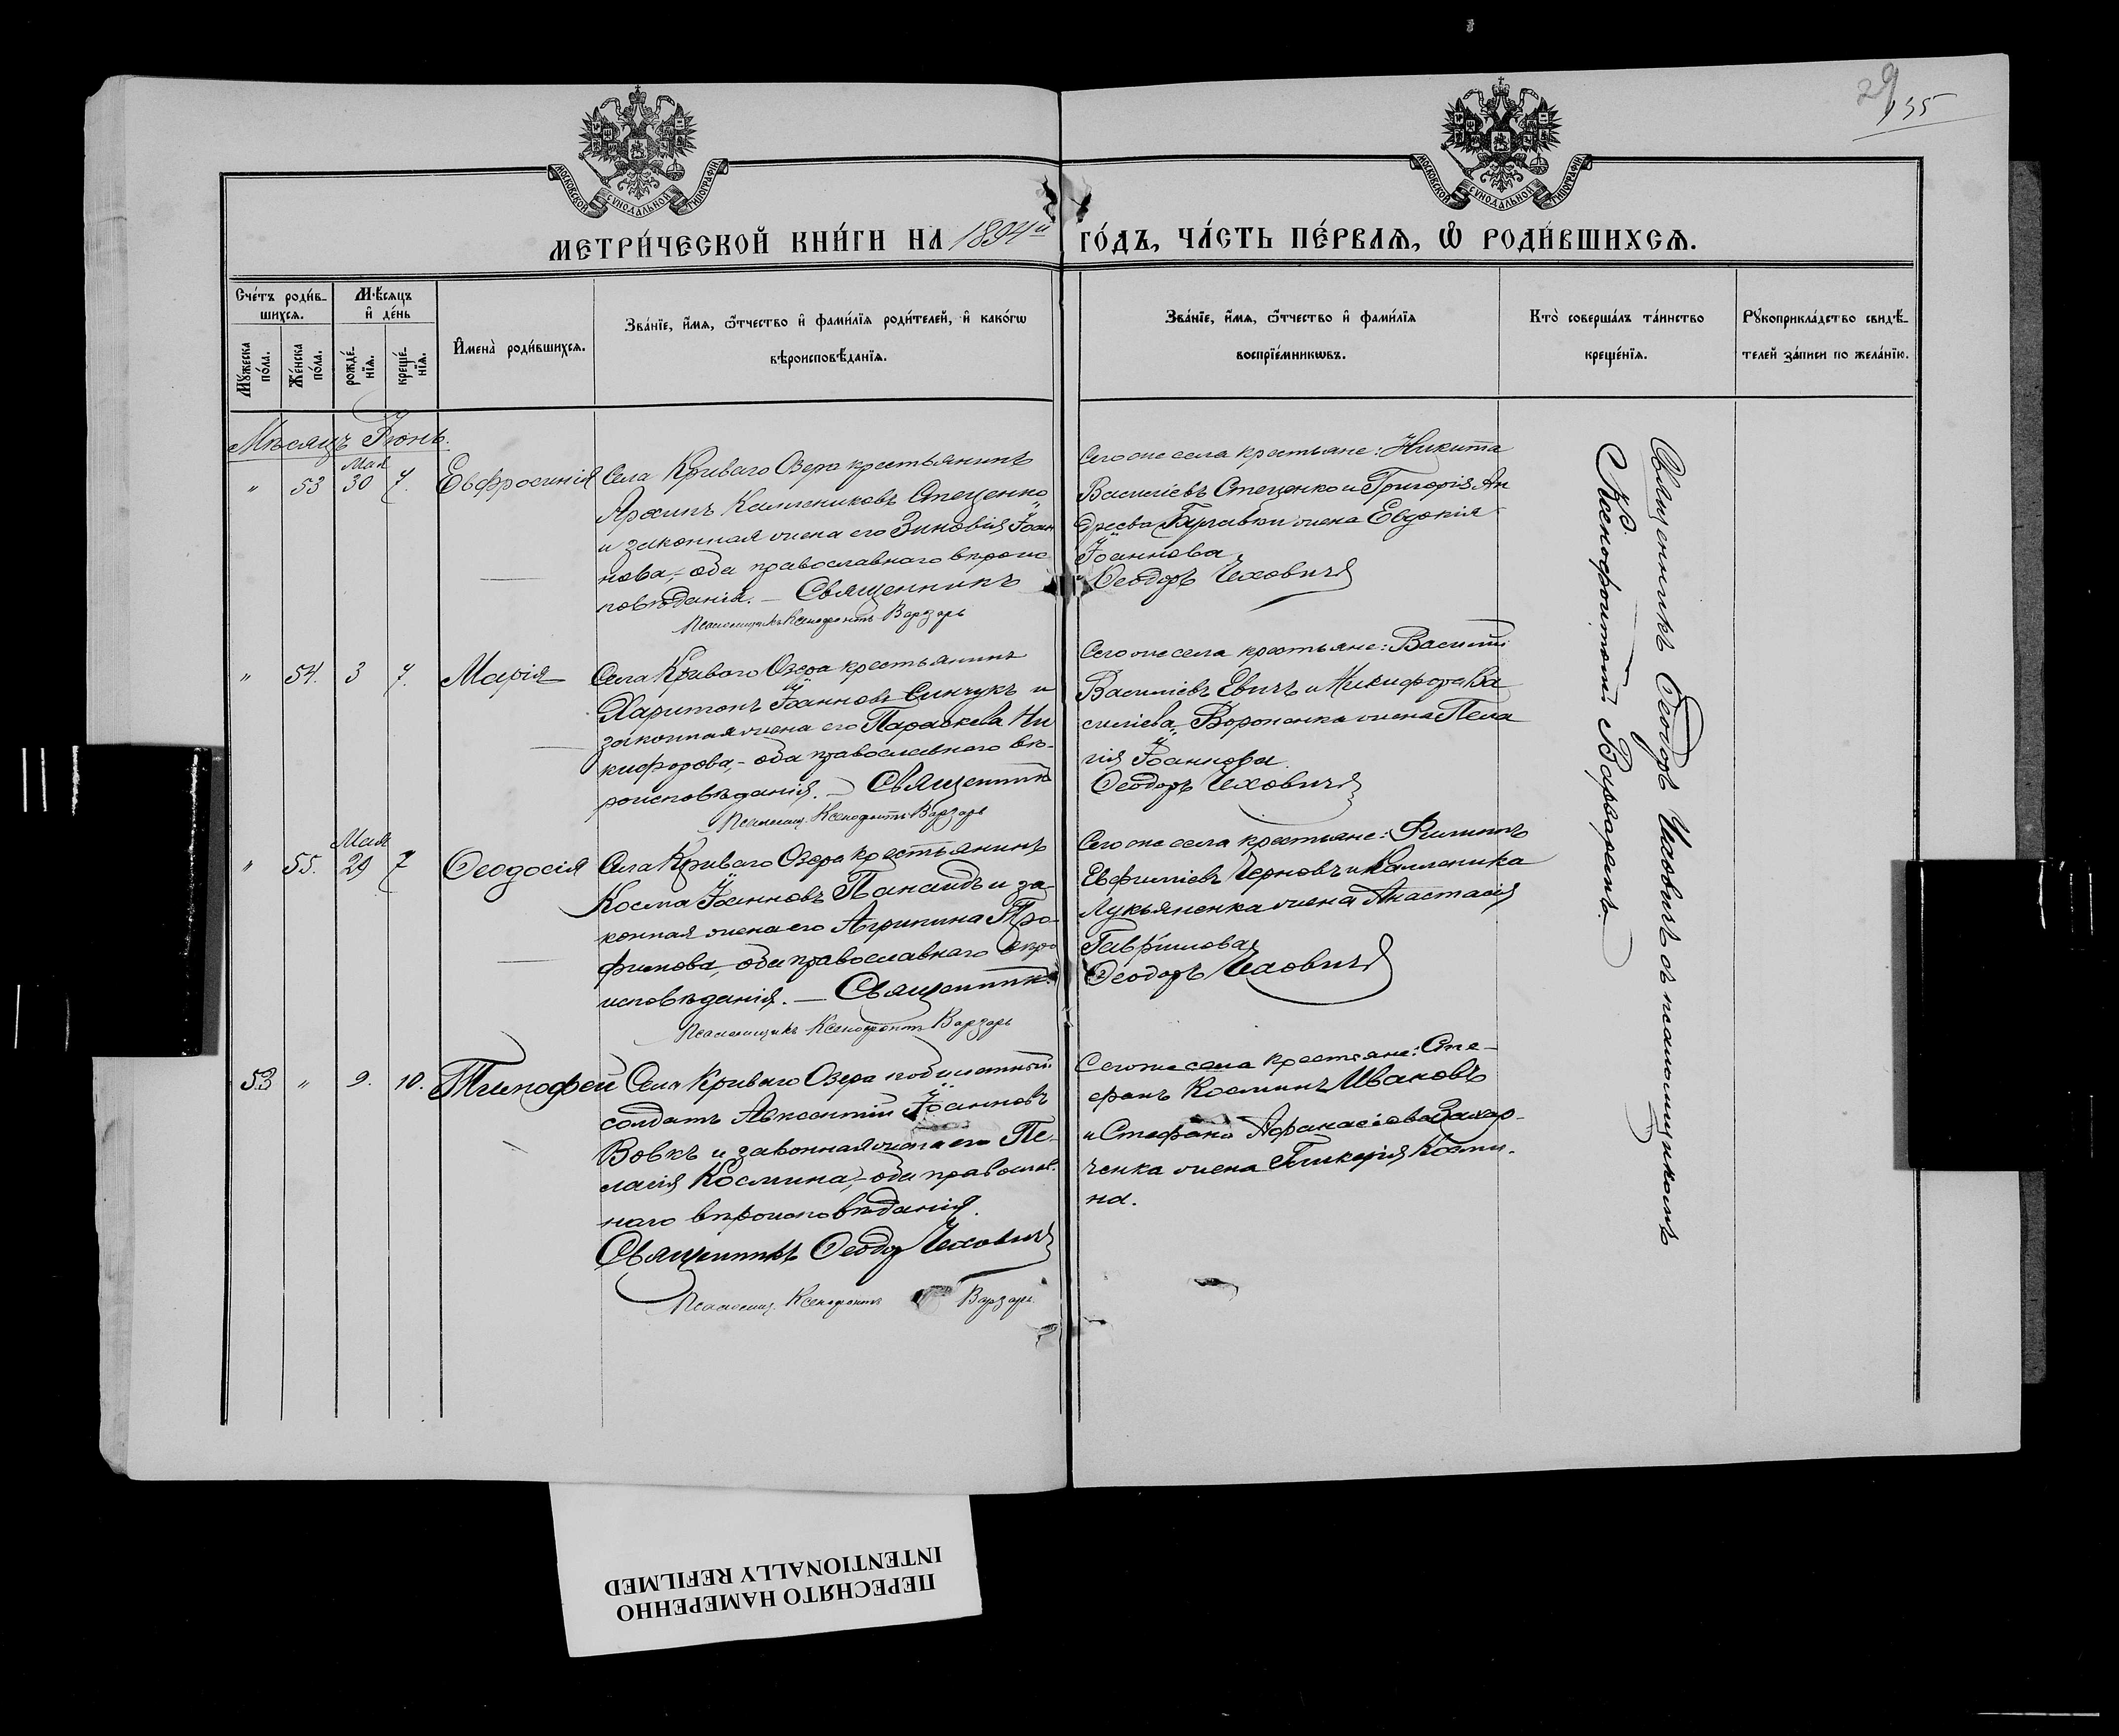 29
135
МОСКОВСКОЙ СѴНОДАЛЬНОЙ ТИПОГРАФІИ
МОСКОВСКОЙ СѴНОДАЛЬНОЙ ТИПОГРАФІИ
МЕТРИ́ЧЕСКОЙ КНИ́ГИ НА 1894й ГО́ДЪ, ЧА́СТЬ ПЕ́РВАѦ, Ѽ РОДИ́ВШИХСѦ.
Сче́тъ роди́в-
шихсѧ.
Му́жеска
по́ла.
Же́нска
по́ла.
М҆ѣсѧцъ
и҆ де́нь
рожде́-
нїѧ.
креще́-
нїѧ.
И҆мена̀ роди́вшихсѧ.
Зва́нїе, и҆́мѧ, ѻ҆́тчество и҆ фами́лїѧ роди́телей, и҆ како́гѡ
вѣроисповѣ́данїѧ.
Зва́нїе, и҆́мѧ, ѻ҆́тчество и҆ фами́лїѧ
воспрїе́мникѡвъ.
Кто̀ соверша́лъ та́инство
креще́нїѧ.
Рꙋкоприкла́дство свидѣ́-
телей за́писи по жела́нїю.
Мѣсяцъ Іюнь.
" 53 Мая 30 7. Евфросинія
Села Криваго Озера крестьянинъ
Стеценко
и законная жена его Зиновія Іоан
нова, - оба православнаго вѣроис
повѣданія. - Священникъ
Псаломщикъ Ксенофонтъ Варзарь
Сего же села крестьяне: Никита
Василіевъ Стеценко и Григорія Ан
дреева Булавки жена Евдокія
Іоаннова
Ѳеодоръ Чеховичъ
" 54. 3 7. Марія
Села Криваго Озера крестьянинъ
Харитонъ Іоанновъ Синчукъ и
законная жена его Параскева Ни
кифорова, - оба православнаго вѣ-
роисповѣданія. - Священникъ
Псаломщ. Ксенофонтъ Варзарь
Сего же села крестьяне: Василій
Василіевъ Евичъ и Никифора Ва
силіева Вороненка жена Пела
гія Іоаннова
Ѳеодоръ Чеховичъ
" 55. Мая 29 7 Ѳеодосія
Села Криваго Озера крестьянинъ
Косма Іоанновъ Панаидъ и за-
конная жена его Агрипина Тро-
фимова, - оба православнаго вѣро
исповѣданія. - Священникъ
Псаломщикъ Ксенофонтъ Варзарь
Сего же села крестьяне: Филиппъ
Евфиміевъ Черновъ и Каленика
Лукьяненка жена Анастасія
Гавріилова
Ѳеодоръ Чеховичъ
53 " 9. 10. Тимофей
Села Криваго Озера побилетный
солдатъ Авксентій Іоанновъ
Вовкъ и законная жена его Пе-
лагія Космина, - оба православ-
наго вѣроисповѣданія.
Священникъ Ѳеодоръ Чеховичъ
Псаломщ. Ксенофонтъ Варзарь.
Сего же села крестьяне: Сте-
фанъ Косминъ Ивановъ
и Стефана Афанасіева Захар-
ченка жена Гликерія Косми-
на.
Священникъ Ѳеодоръ Чеховичъ съ псаломщикомъ
Ксенофонтомъ Варзаремъ.
ПЕРЕСНЯТО НАМЕРЕННО
INTENTIONALLY REFILMED